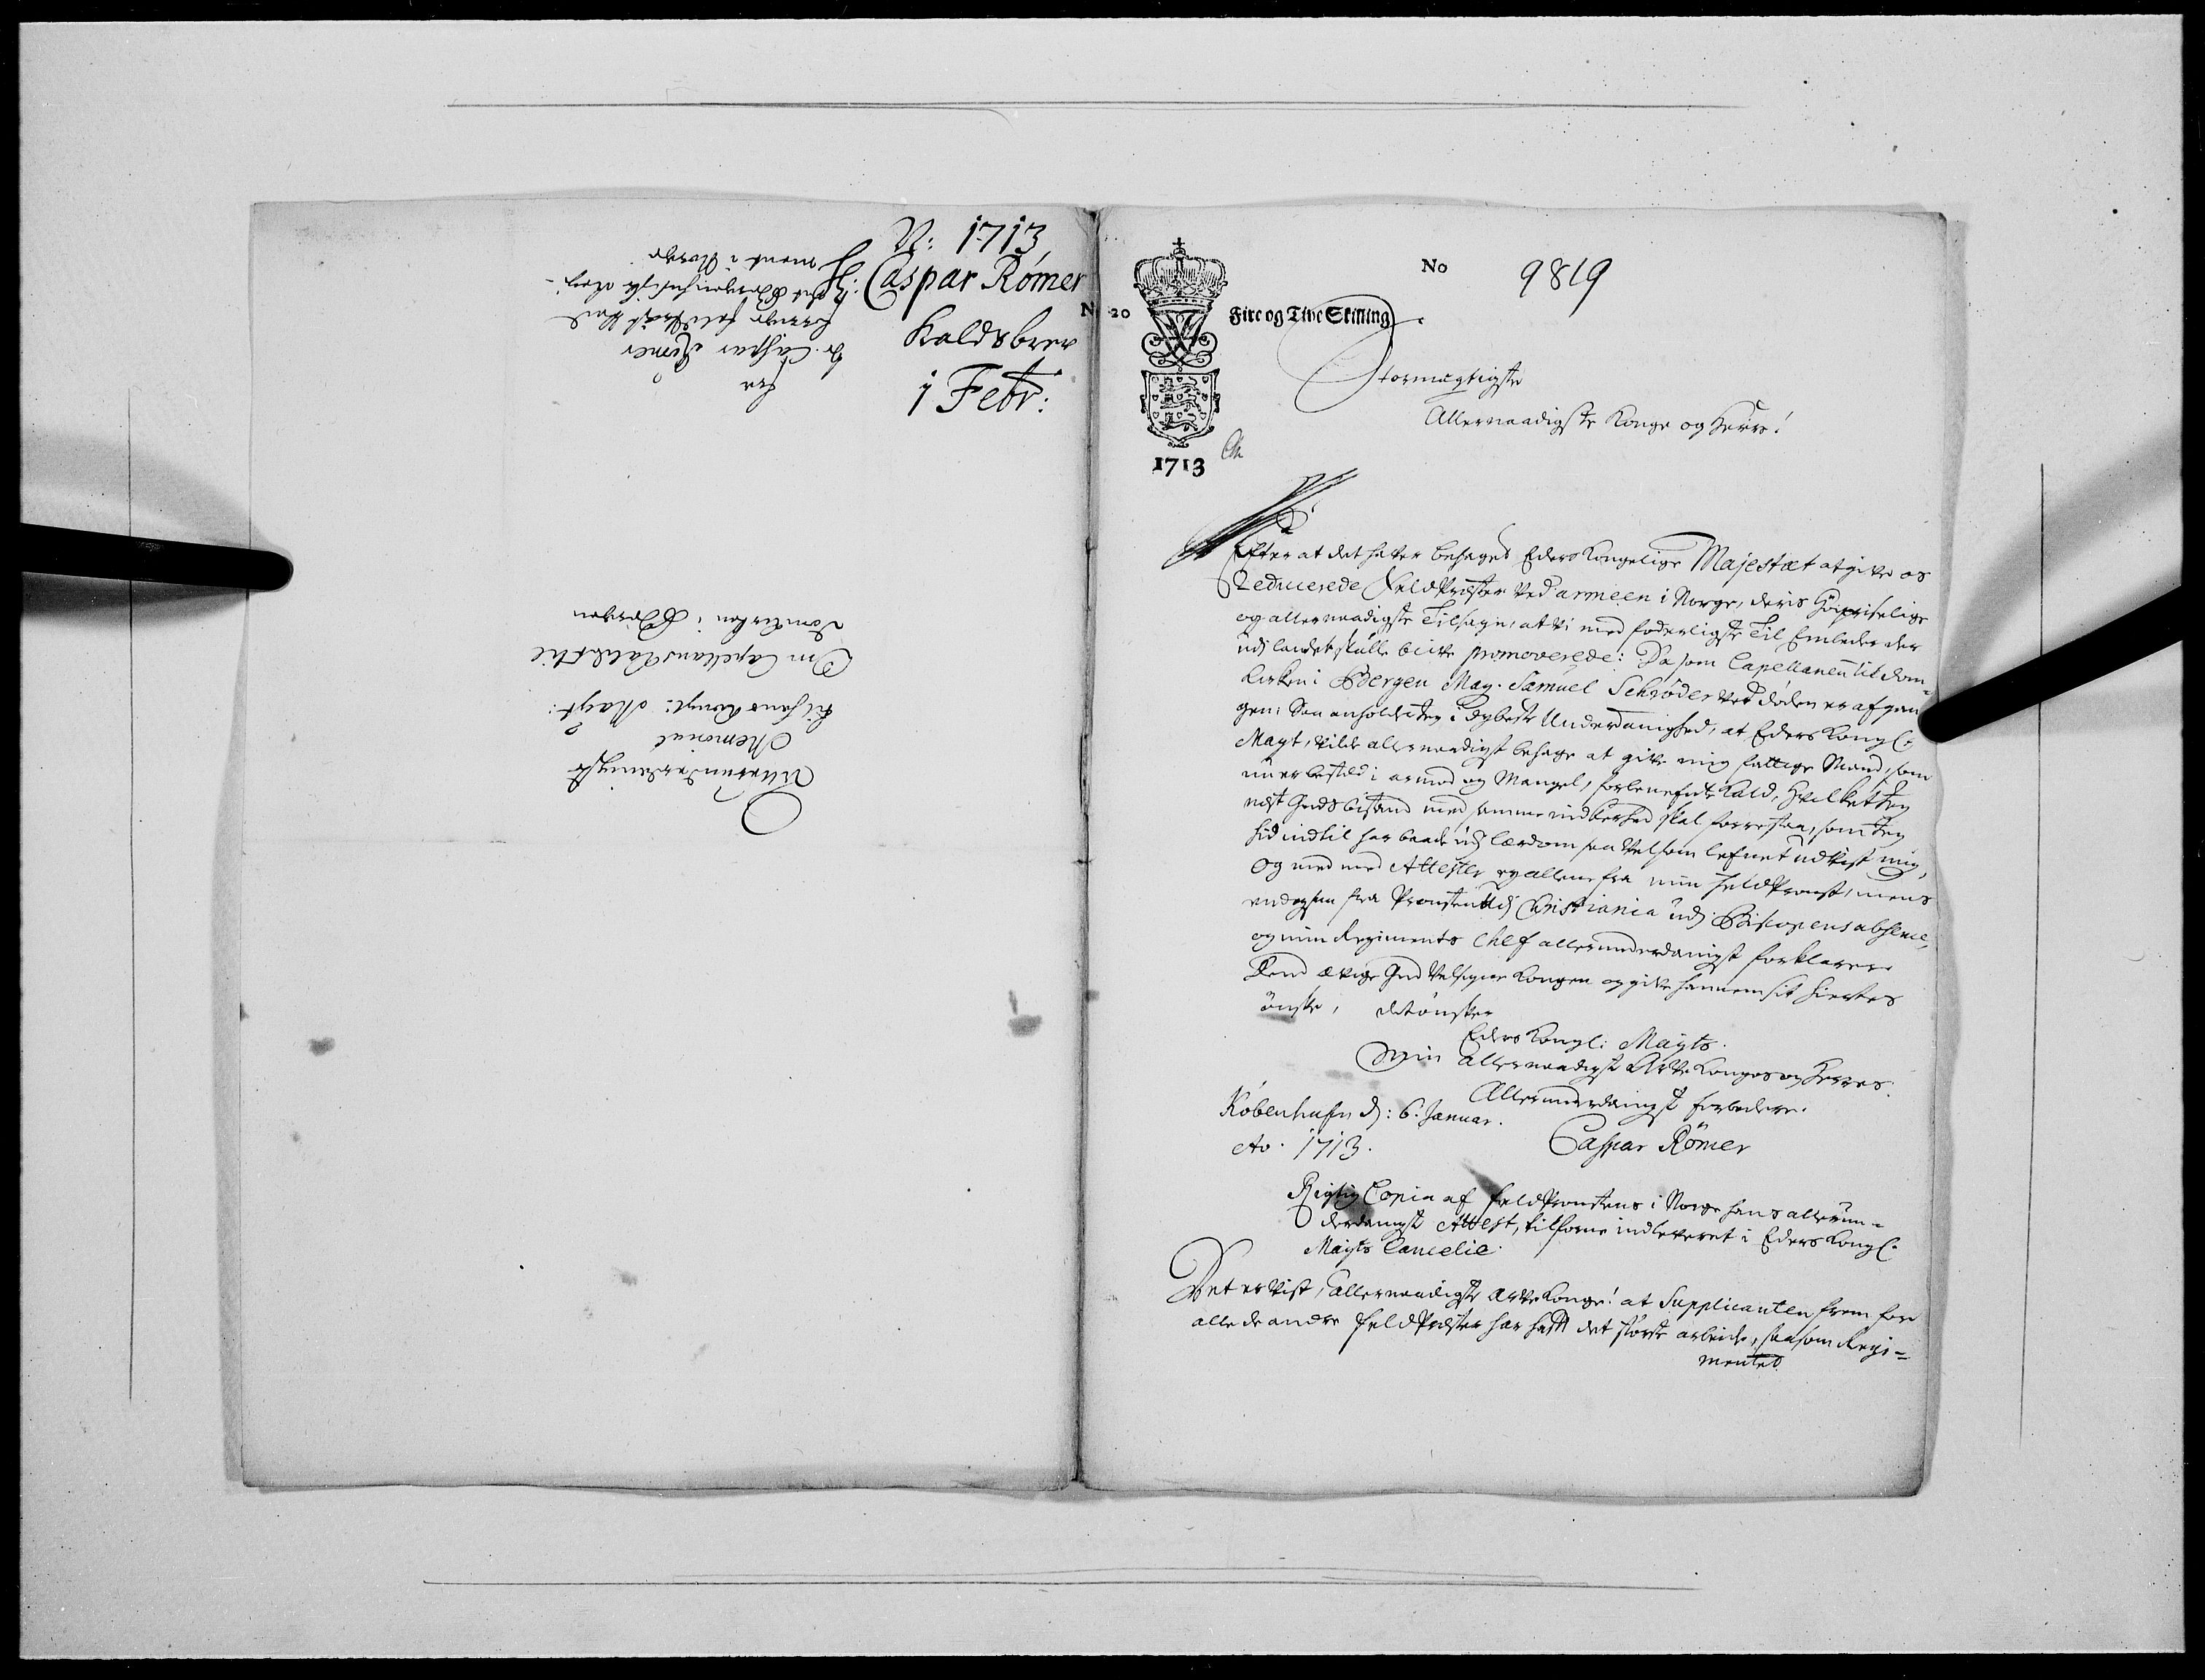 N: 1713
Hr: Caspar Römer
Kaldsbrev
1 Febr:
fra
Hr. Casper Römer
forrige feldtPræst ved
det Bergenhusiske Regi-
ment i Norge
Allerunderdanigste
Memorial
til hans Kongl: Mayt:
Om Capellans Kaldet til
Domkirken i Bergen
No 9819
N 20 Fire og Tive Skilling
1713
Stormægtigste
Allernaadigste Konge og Herre!
Efter at det haver behaget Eders Kongelige Majestæt at give os
Reducerede FeldPræster ved armeen i Norge, deris Höypriselige
og allernaadigste Tilsagn, at vi med foderligste Til Embeder der
udj landet skulle blive promoverede: Da som Capellanen til dom-
kirken i Bergen Mag. Samuel Schröder ved döden er afgan-
gen; Saa anholder Jeg i dybeste Underdanighed, at Eders Kongl:
Mayt, vilde allernaadigst behage at give mig fattige Mand, som
nu er bestæd i armod og Mangel, forbenefnte kald, hvilket Jeg
nest Guds bistand med samme vindskerhed skal forrestaa, som Jeg
hid indtil har baade udj lærdom saa velsom lefnet udvist mig,
og med med Attester ey allene fra min FeldProvst, mens
endogsaa fra Provsten udj Christiania udj Biscopens absence,
og min Regiments Chef allerunderdanigst forklarer.
Dend ævige Gud velsigne Kongen og give hannem sit hiertes
önske, det önsker
Eders Kongl: Mayts.
Min allernaadigst Arve Konges og Herres
Allerunderdanigst forbedere.
Köbenhafn d: 6. Januar.
Ao. 1713.
Caspar Römer
Rigtig Copia af feldProvstens i Norge hans allerun-
derdanigst Attest, tilforne indleveret i Eders Kongl:
Mayts Cancelie.
Det er vist, allernaadigste Arve Konge! at Supplicanten frem for
alle de andre FeldPræster har hafft det störste arbeide, saasom Regi-
mentet